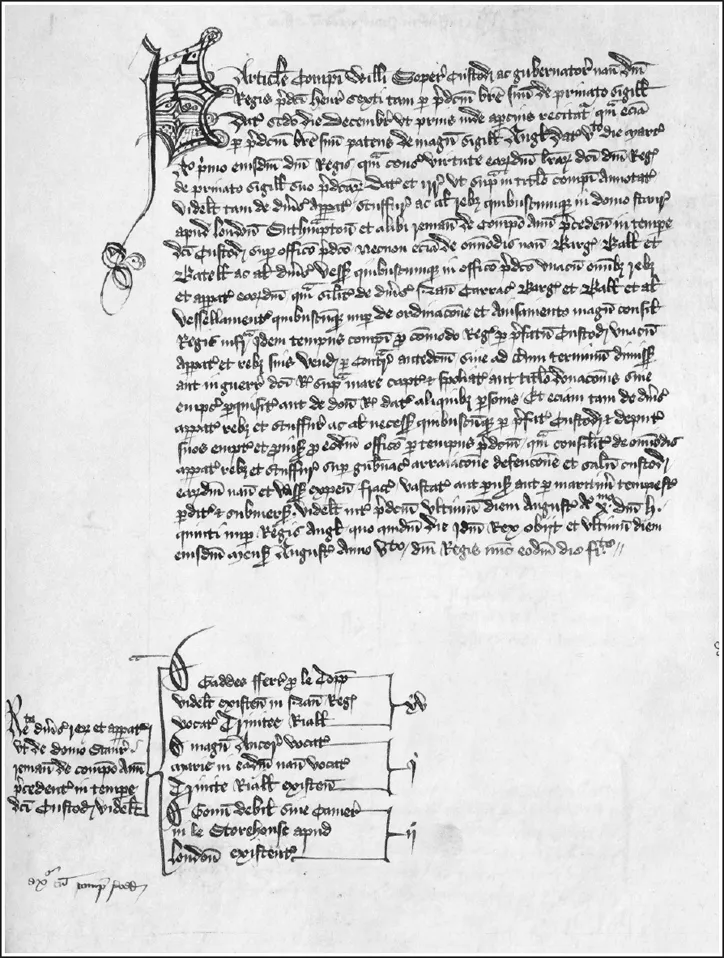 Particule Compi Willi Soper Custod ac gubernator nauū dni
Regis pdci Henr sexti tam p pdcm bre suū de priuato sigill
dat scdo die Decembr vt prius inde apcius recitat qm ecia
p pdcm bre suū patens de magno sigill Angl dat vto die Marc
Ao primo eiusdm dni Regis virtute eardm lrar dci dni Reg
de priuato sigill suo pdcar dat et vt supa in titlo compi annotat
videlt tam de diūs appat stuffur ac al reb quibuscumque in domo staur
apud london Suthampton et alibi reman de Compo Anni pcedent in tempe
dci Custod sup officio pdco necnon ecia de omodis nauū Barg Ball et
Batell ac al diūs vess quibuscumque in officio pdco vnacū omib reb
et appat eordm qm silit de diūs Nau Carrac Barg et Ball et al
vessellament quibuscumque nup de ordinacone et Auisamento magni consil
Regis infra idem tempus compi p comodo Reg p pfatū Custod vnacū
appat et reb suis vend p antedcm siue ad terminū dimiss
aut in guerr dci R supa mare capt et spoliat aut titlo donaconis siue
empc pquisit aut de dono R dat aliquib psonis Et eciam tam de diūs
appat reb et stuffur ac al necess quibuscumque p pfat Custod et deput
suos empt et puis p eodm officio p tempus pdcm qm consilit de omodis
appat reb et stuffur sup gubnac arraiacone defencone et salua custod
eardm nauū et vess expen fract vastat aut p maritim tempest
pdit et submers videlt int pdcm vltimū diem Augusti Ao xmo dni H.
quinti nup Regis Angl quo quidm die idm Rex obijt et vltimū diem
eiusdm mens Augusti Anno vto dni Regis nūc eodm die finito
Re diūs reb et appat
vt de domo Staur
reman de compo Anni
pcedent in tempe
dci Custod videlt
D Gaddes fferr p le Topp
videlt existen in Naui Reg
vocat Trinite Riall
xv
D magn Ancor vocat
marie in eadm naui vocat
Trinite Riall existen
j
D Gonn debil sine Camer
in le Storehouse apud
london existent
ij